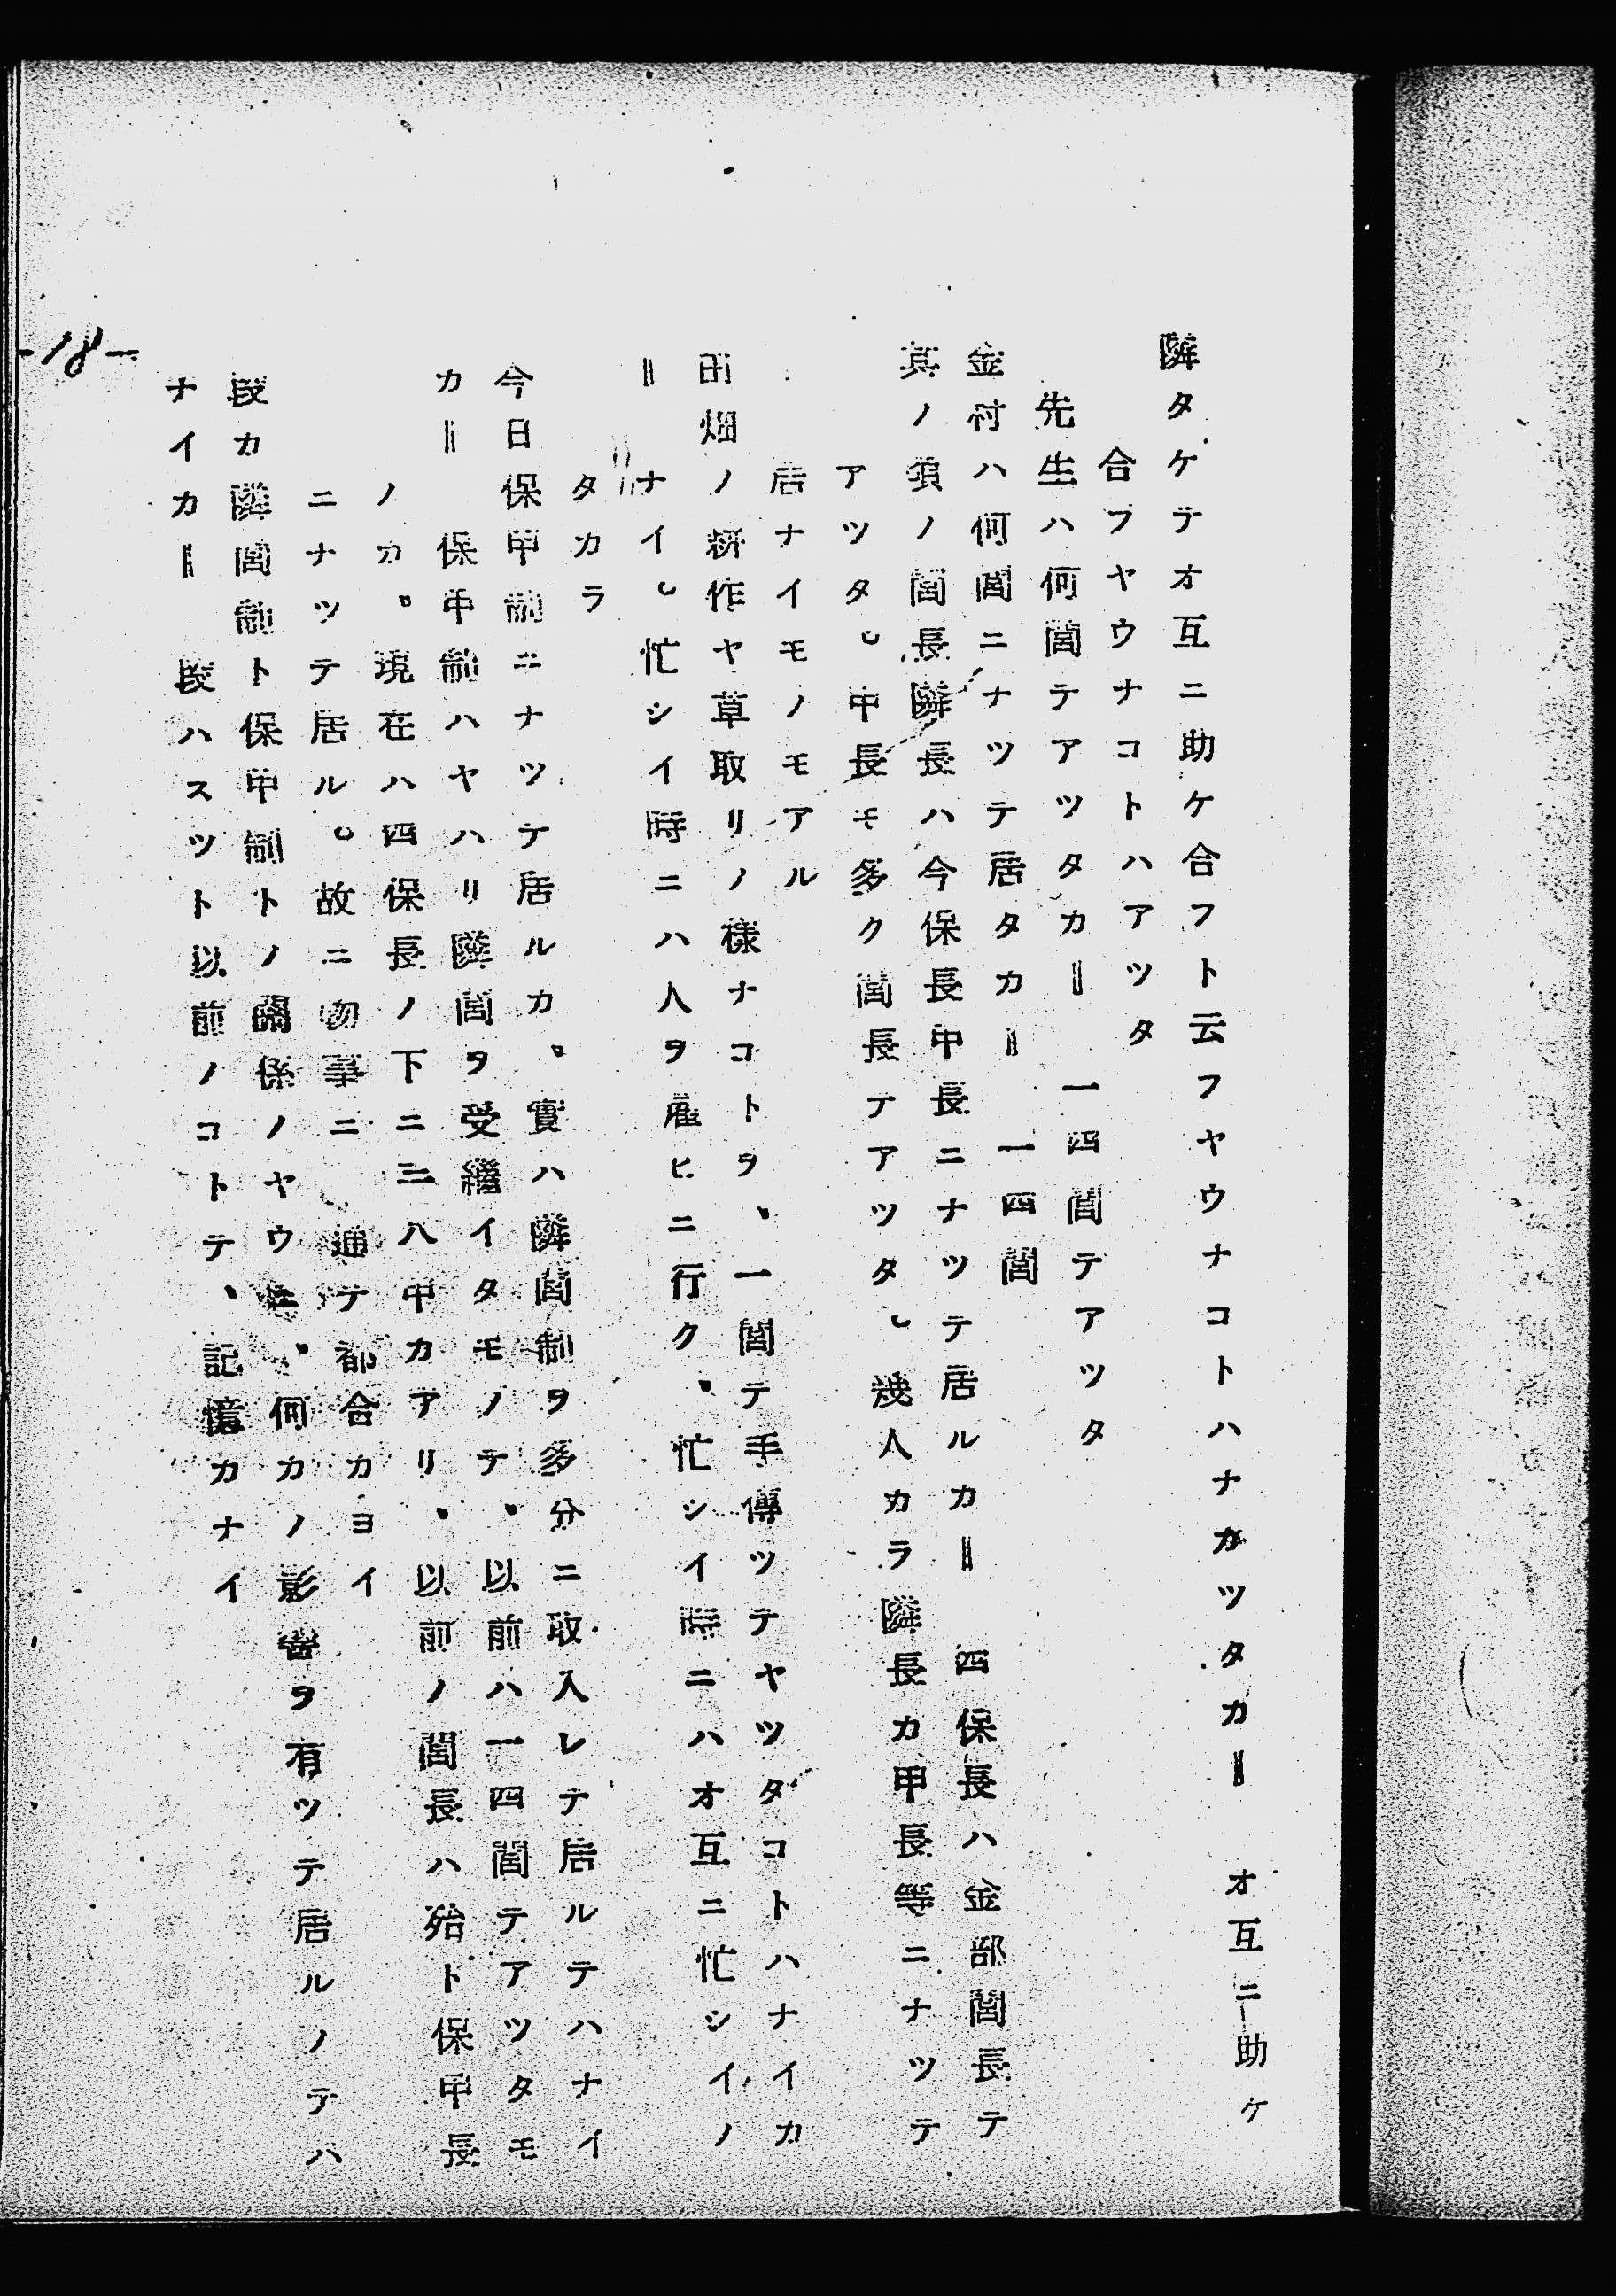 隣タケテオ互ニ助ケ合フト云フヤウナコトハナカツタカ＝　オ互ニ助ケ
合フヤウナコトハアツタ
先生ハ何閭テアツタカ＝　一四閭テアツタ
金村ハ何閭ニナツテ居タカ＝　一四閭
其ノ頃ノ閭長隣長ハ今保長甲長ニナツテ居ルカ＝　四保長ハ金部閭長テ
アツタ。甲長モ多ク閭長テアツタ。幾人カラ隣長カ甲長等ニナツテ
居ナイモノモアル
田畑ノ耕作ヤ草取リノ様ナコトヲ、一閭テ手傳ツテヤツタコトハナイカ
＝　ナイ。忙シイ時ニハ人ヲ雇ヒニ行ク、忙シイ時ニハオ互ニ忙シイノ
タカラ
今日保甲制ニナツテ居ルカ、實ハ隣閭制ヲ多分ニ取入レテ居ルテハナイ
カ＝　保甲制ハヤハリ隣閭ヲ受繼イタモノテ、以前ハ一四閭テアツタモ
ノカ、現在ハ四保長ノ下ニ三八甲カアリ、以前ノ閭長ハ殆ト保甲長
ニナツテ居ル。故ニ物事ニ　通テ都合カヨイ
段カ隣閭制ト保甲制トノ關係ノヤウニ、何カノ影響ヲ有ツテ居ルノテハ
ナイカ＝　段ハスツト以前ノコトテ、記憶カナイ
-18-